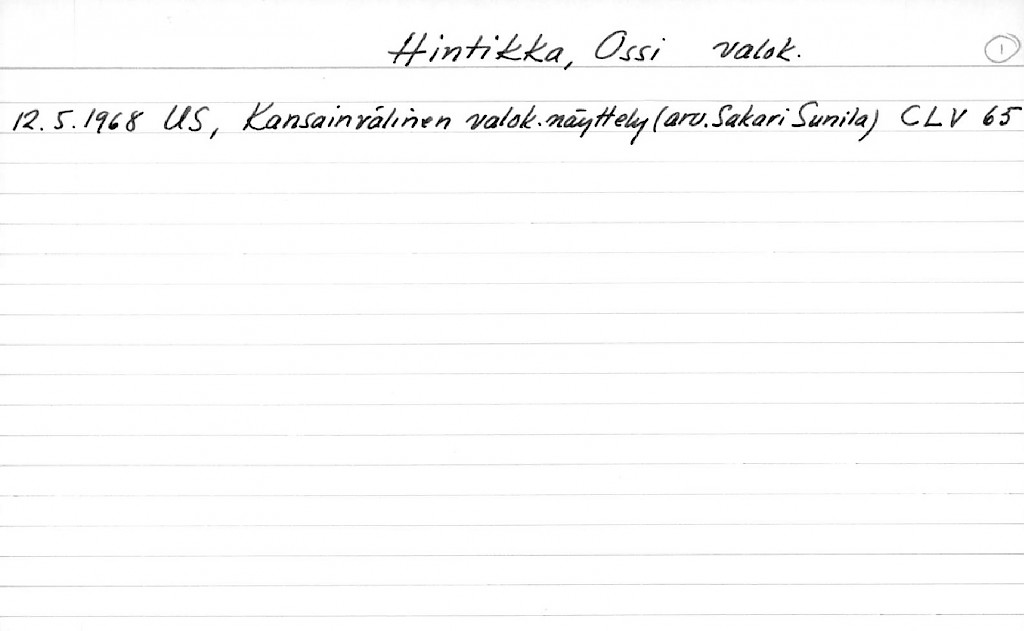 Hintikka, Ossi valok. 1
12.5.1968 US, Kansainvälinen valok.näyttely (arv. Sakari Sunila) CLV 65